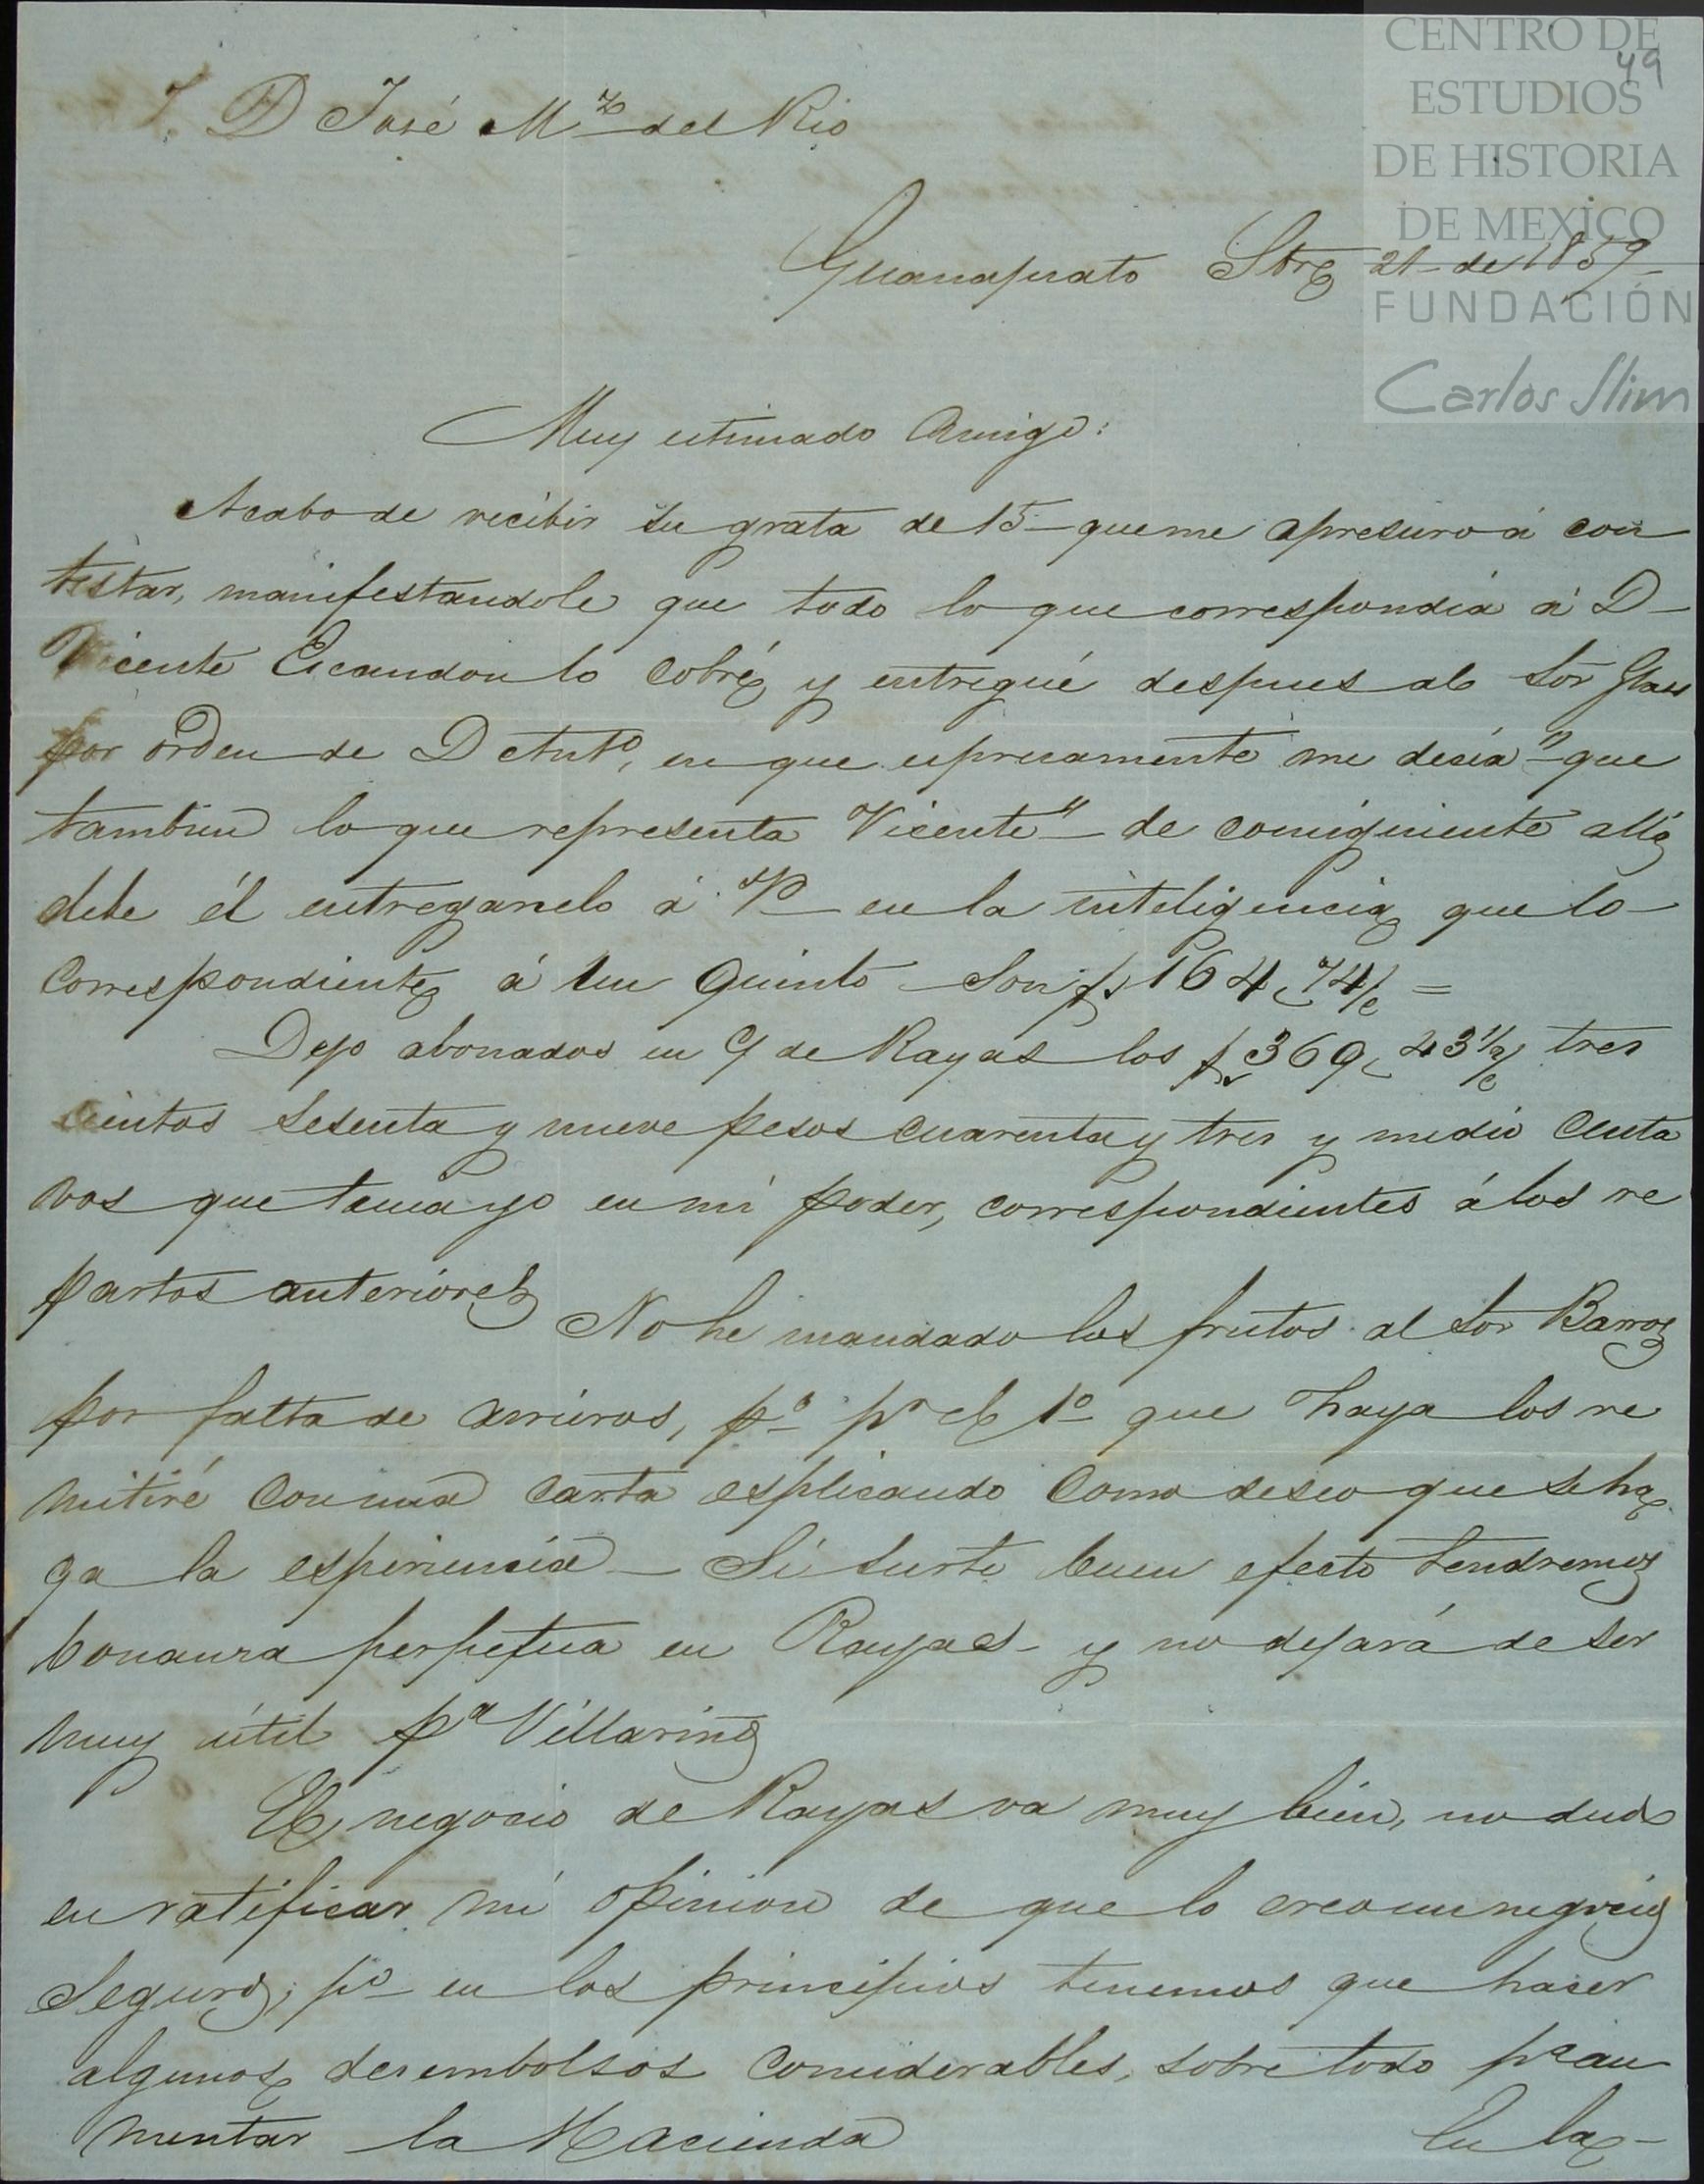 CENTRO DE
ESTUDIOS
DE HISTORIA
DE MEXICO
FUNDACIÓN
Carlos Slim
49
S. D José M.ª del Rio
Guanajuato Stbre 21 de 1859
Muy estimado Amigo:
Acabo de recibir su grata de 15 que me apresuro á con
testar, manifestandole que todo lo que correspondia á D
Vicente Escandon lo cobré y entregué despues al Sor Glass
por orden de D Ant.º, en que espresamente me decia "que
tambien lo que representa Vicente" de consiguiente allá
debe él entregarselo á V en la inteligencia que lo
correspondiente á un quinto son $ 164, 74/c =
Dejo abonados en C/ de Rayas los $ 369, 43½/c tres
cientos sesenta y nueve pesos cuarenta y tres y medio centa
vos que tenia yo en mi poder, correspondientes á los re
partos anteriores
No he mandado los frutos al Sor Barros
por falta de arrieros, p.º p.r el 1.º que haya los re
mitiré con una carta esplicando como deseo que se ha
ga la esperiencia – Si surte buen efecto tendremos
bonanza perpetua en Rayas y no dejará de ser
muy útil p.ª Villarino
El negocio de Rayas va muy bien, no dudo
en ratificar mi opinion de que lo creo un negocio
seguro; p.º en los principios tenemos que hacer
algunos desembolsos considerables, sobre todo p.ª au
mentar la Hacienda
En la